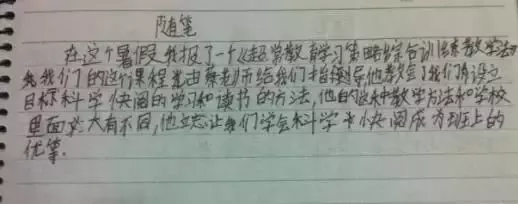 随笔
在这个暑假我报了一个《超常教育学习策略综合训练教学法》
我们的这个课程是由蔡老师给我们指导他教会了我们有设立
目标科学快阅的学习和读书的方法,他的这种教学方法和学校
里面大有不同,他立志让我们学会科学快阅成为班上的
优等.